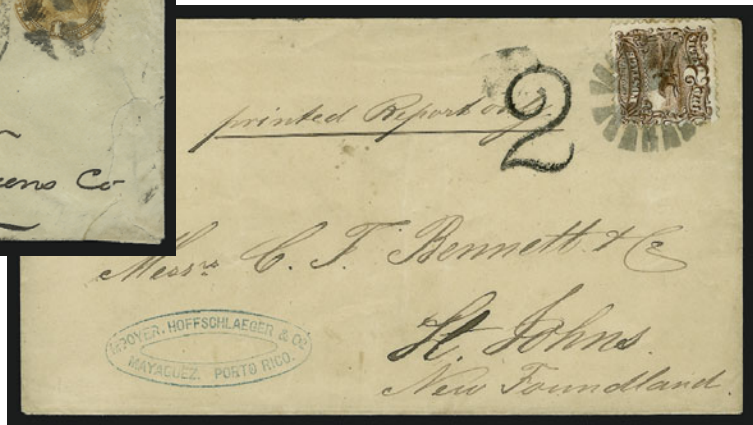 Co
printed Report only
2
Messrs C. F. Bennett & Co
St. Johns
New Foundland.
HOFFSCHLAEGER & CO.
MAYAGUEZ, PORTO RICO.